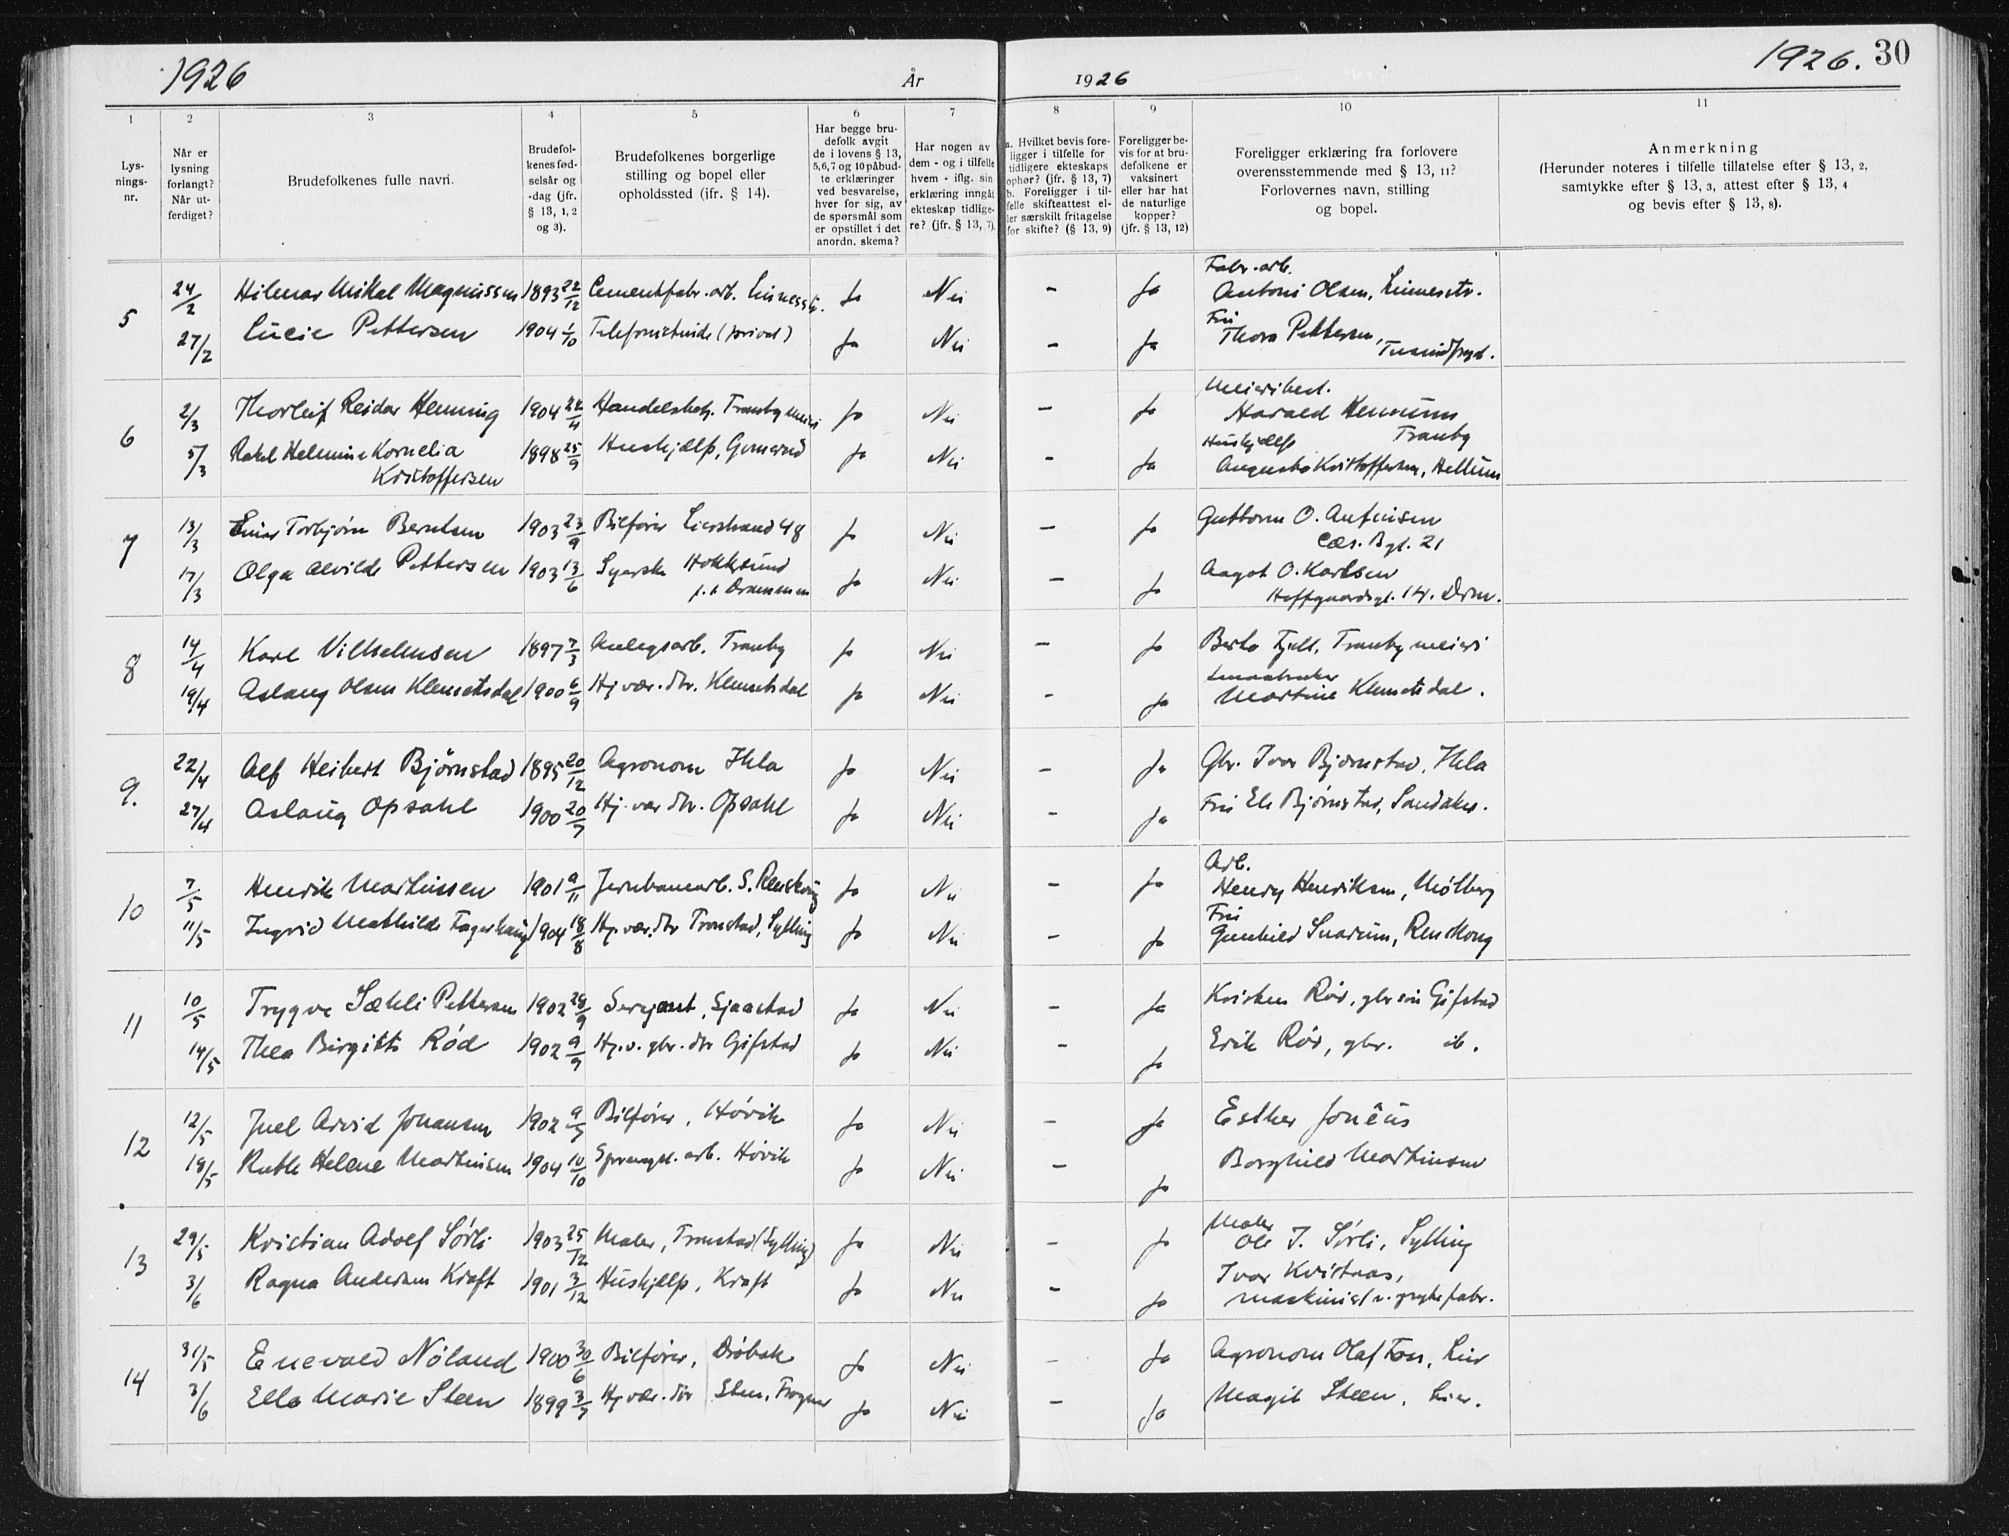 1926
År
1926
1926. 30
1 2 3 4 5 6 7 8 9 10 11
Lys-
nings-
nr.
Når er
lysning
forlangt?
Når ut-
ferdiget?
Brudefolkenes fulle navn.
Brudefol-
kenes fød-
selsår og
-dag (jfr.
§ 13, 1, 2
og 3).
Brudefolkenes borgerlige
stilling og bopel eller
opholdssted (jfr. § 14).
Har begge bru-
defolk avgit
de i lovens § 13,
5,6,7 og 10 påbud-
te erklæringer
ved besvarelse,
hver for sig, av
de spørsmål som
er opstillet i det
anordn. skema?
Har nogen av
dem - og i tilfelle
hvem - iflg. sin
erklæring inngåt
ekteskap tidlige-
re? (jfr. § 13, 7).
a. Hvilket bevis fore-
ligger i tilfelle for
tidligere ekteskaps
ophør? (jfr. § 13, 7)
b. Foreligger i til-
felle skifteattest el-
ler særskilt fritagelse
for skifte? (§ 13, 9)
Foreligger be-
vis for at bru-
defolkene er
vaksinert
eller har hat
de naturlige
kopper?
(jfr. § 13, 12)
Foreligger erklæring fra forlovere
overensstemmende med § 13, 11?
Forlovernes navn, stilling
og bopel.
Anmerkning
(Herunder noteres i tilfelle tillatelse efter § 13, 2,
samtykke efter § 13, 3, attest efter § 13, 4
og bevis efter § 13, 8).
5 24/2 Hilmar Mikal Magnussen 1893 22/12 Cementfabr. arb. Linnesstr. Ja Nei - Ja Fabr. arb. Antoni Olsen, Linnesstr.
27/2 Lucie Pettersen 1904 1/10 Telefonistinde (privat) Ja Nei - Ja Fru Thora Pettersen, Tusindfryd.
6 2/3 Thorleif Reidar Henning 1904 Handelsbetj. Tranby meieri Ja Nei - Ja Meieribest. Harald Hennum Tranby
5/3 Rakel Helmine Kornelia Kristoffersen 1898 25/9 Huskjælp, Ja Nei - Ja Huskjælp Augusta Kristoffersen, Hellum
7 13/3 Einar Torbjørn Berntsen 1903 23/9 Bilfører Lierstrand 48 Ja Nei - Ja Guttorm O. Anfinsen Cæs. Bgt. 21
17/3 Olga Alvilde Pettersen 1903 13/6 Syerske Hokksund p.t. Drammen Ja Nei - Ja Aagot O. Karlsen Hoffgaardsgt. 14. Drm.
8 14/4 Karl Vilhelmsen 1897 7/3 Anlegsarb. Tranby Ja Nei - Ja Berta Fjell, Tranby meieri
19/4 Aslaug Olsen Klemetsdal 1900 6/9 Hj.vær. dtr. Klemetsdal Ja Nei - Ja Smaabruker Martine Klemetsdal.
9. 22/4 Alf Heibert Bjørnstad 1895 20/12 Agronom Ihla Ja Nei - Ja Gbr. Ivar Bjørnstad, Ihla
27/4 Aslaug Opsahl 1900 20/7 Hj. vær dtr. Opsahl Ja Nei - Ja Fru Els Bjørnstad, Sandaker.
10 7/5 Henrik Martinsen 1901 9/11 Jernbanearb. S. Renskoug Ja Nei - Ja Arb. Henry Henriksen, Mølberg
11/5 Ingrid Mathilde Fagerhaug 1904 18/8 Hj. vær. dtr Tronstad, Sylling Ja Nei - Ja Fru Gunhild Snarum, Renskoug
11 10/5 Trygve Sæhli Pettersen 1902 28/9 Sersjant, Sjaastad Ja Nei - Ja Kristen Rød, gbr. søn Gifstad
14/5 Thea Birgitte Rød 1902 9/9 Hj.v. gbr. dtr Gifstad Ja Nei - Ja Erik Rød, gbr. ib.
12 12/5 Juel Arvid Johansen 1902 9/7 Bilfører, Høvik Ja Nei - Ja Esther Joneus
18/5 Ruth Helene Martinsen 1904 10/10 Sprengst. arb. Høvik Ja Nei - Ja Borghild Martinsen
13 29/5 Kristian Adolf Sørli 1903 25/12 Maler, Tronstad (Sylling) Ja Nei - Ja Maler Ole J. Sørli, Sylling
3/6 Ragna Andersen Kraft 1901 3/12 Huskjælp, Kraft Ja Nei - Ja Ivar Kvistaas, maskinist v. fabr.
14 31/5 Enevald Nøland 1900 30/6 Bilfører, Drøbak Ja Nei - Ja Agronom Olaf Foss, Lier
3/6 Ella Marie Steen 1899 3/7 Hj. vær. dtr Steen, Frogner Ja Nei - Ja Magit Steen, Lier.